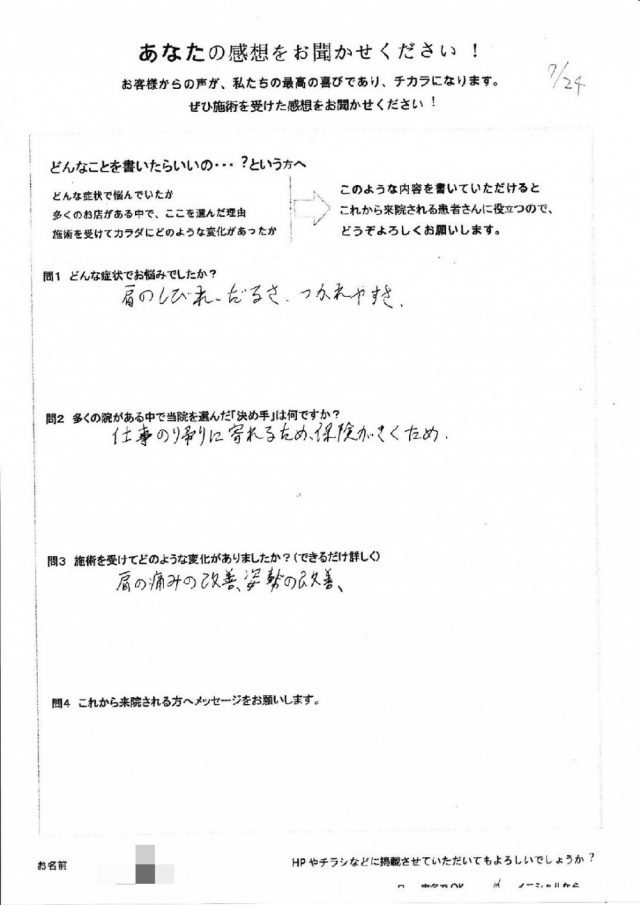 あなたの感想をお聞かせください！
お客様からの声が、私たちの最高の喜びであり、チカラになります。
7/24
ぜひ施術を受けた感想をお聞かせください！
どんなことを書いたらいいの・・・？という方へ
どんな症状で悩んでいたか
多くのお店がある中で、ここを選んだ理由
施術を受けてカラダにどのような変化があったか
このような内容を書いていただけると
これから来院される患者さんに役立つので、
どうぞよろしくお願いします。
問1 どんな症状でお悩みでしたか？
肩のしびれ、だるさ、つかれやすさ、
問2 多くの院がある中で当院を選んだ「決め手」は何ですか？
仕事のり帰りに寄れるため、保険がきくため.
問3 施術を受けてどのような変化がありましたか？（できるだけ詳しく）
肩の痛みの改善、姿勢の改善、
問4 これから来院される方へメッセージをお願いします。
お名前
HPやチラシなどに掲載させていただいてもよろしいでしょうか？